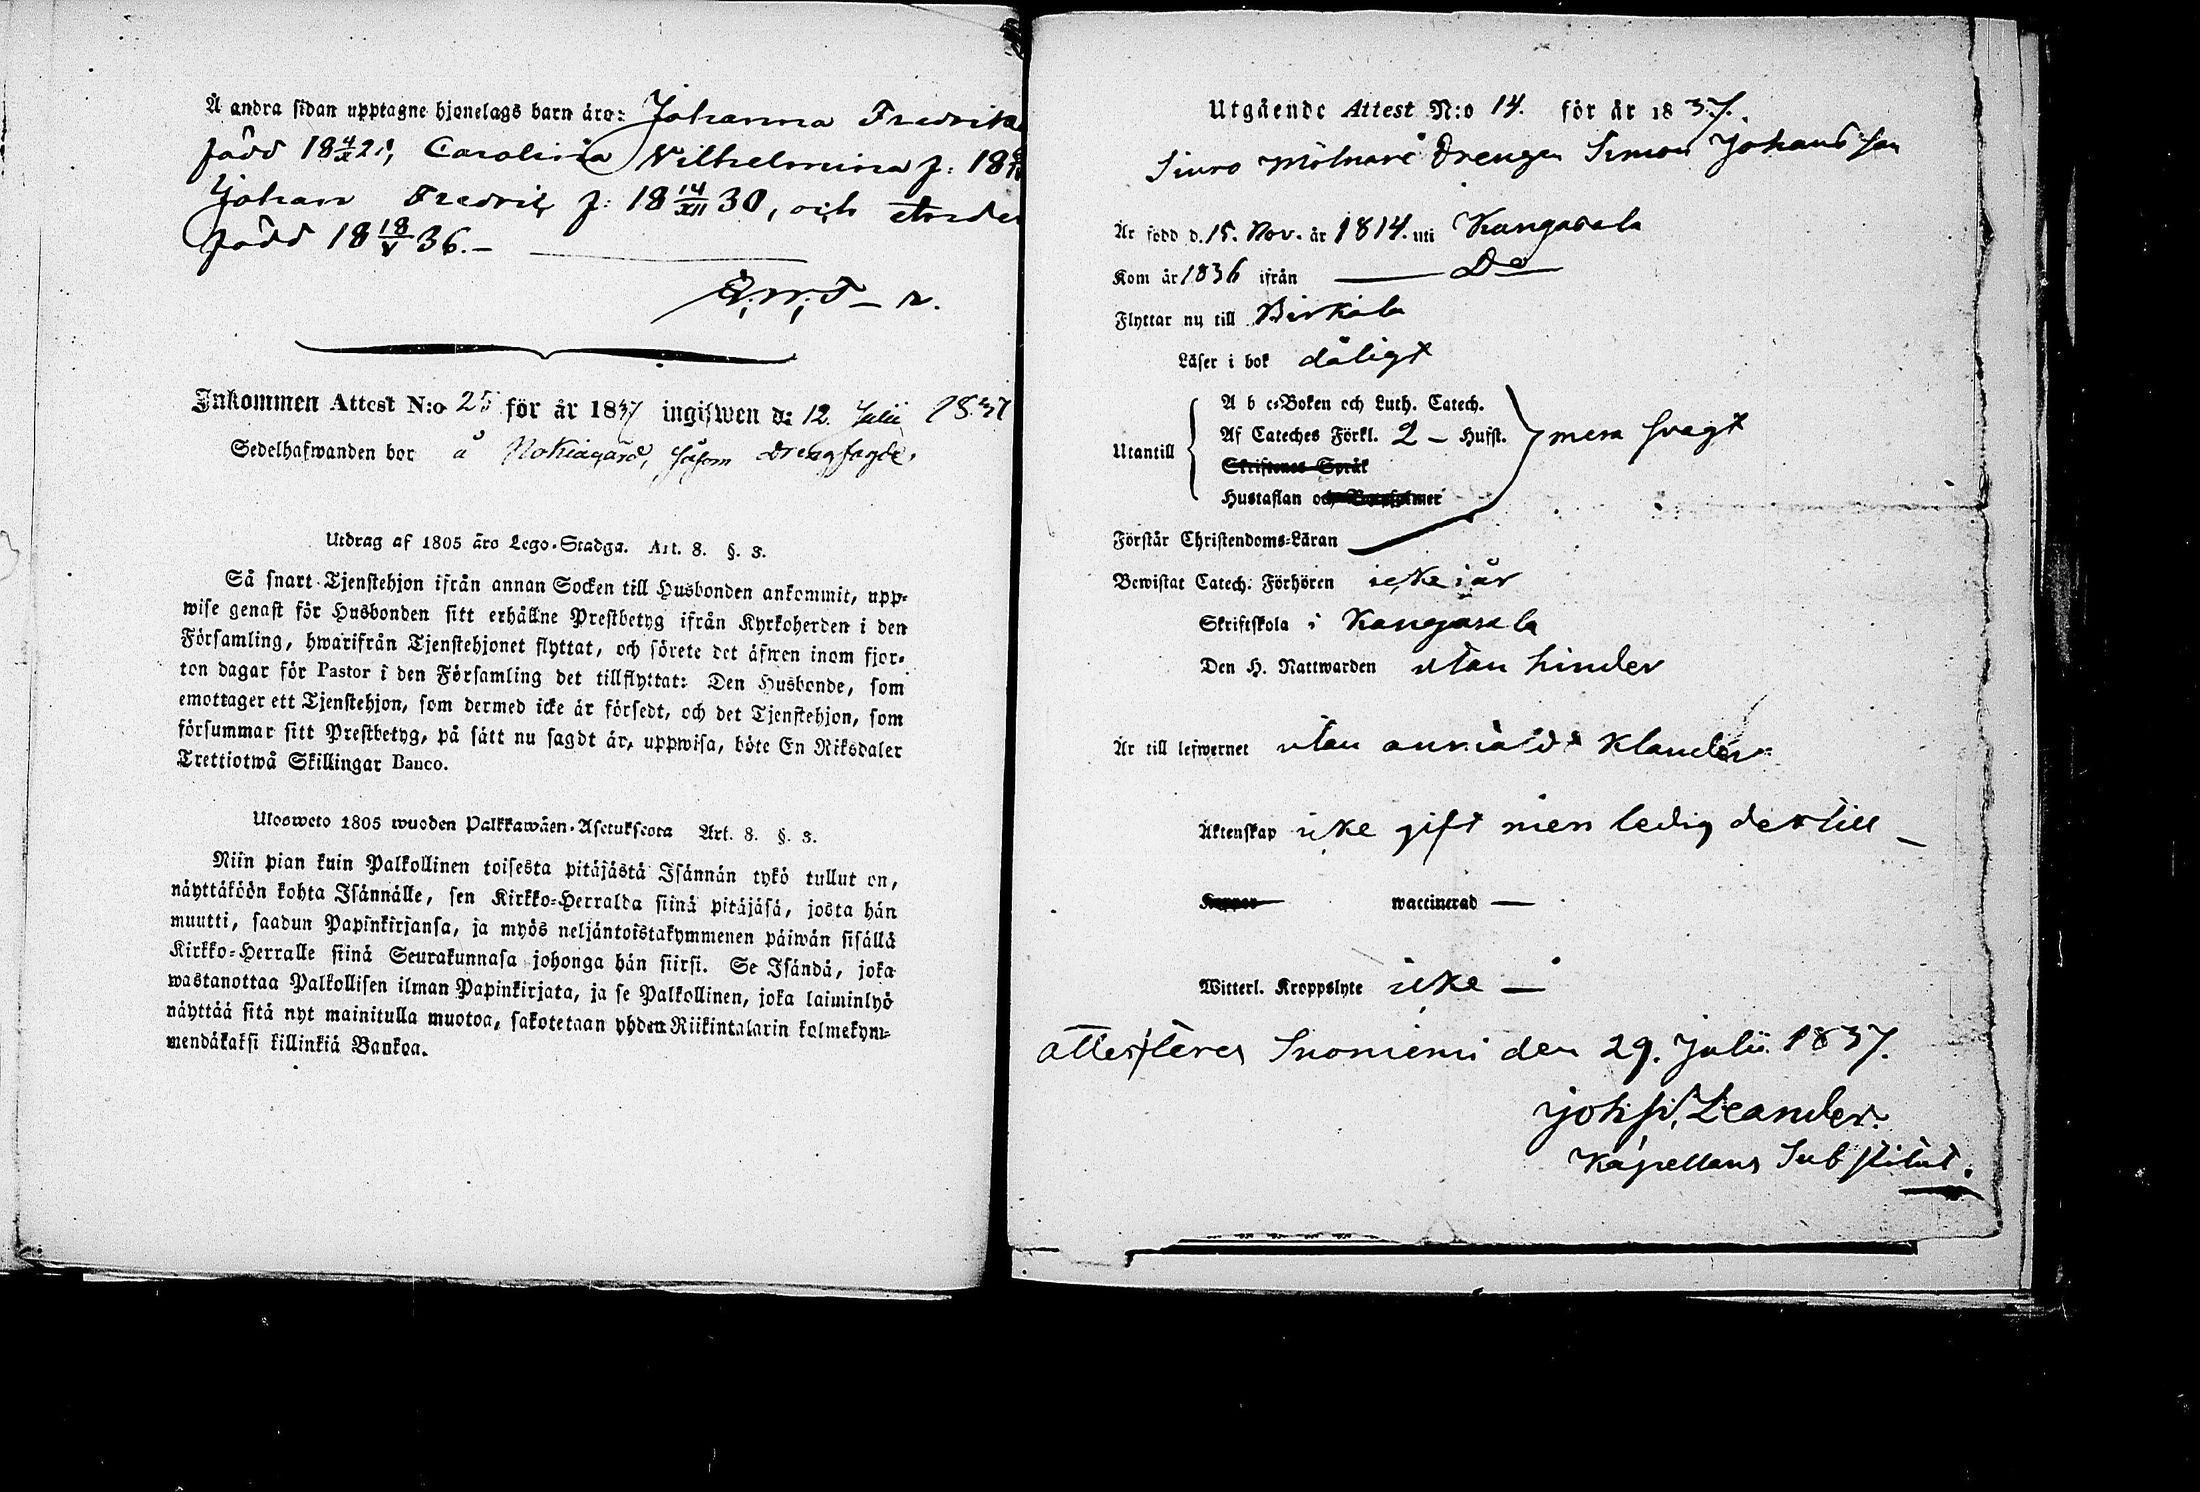 Å andra sidan upptagne hjonelags barn äro: Johanna Fredrika
född 18 4/X 21, Carolina Wilhelmina f: 18
Johan Fredrik f: 18 14/XII 30, och
född 18 18/V 36.–
Inkommen Attest N:o 25 för år 1837 ingifwen d: 12 Julii 1837
Sedelhafwanden bor å Nokiagård, såsom drengfogde.
Utdrag af 1805 års Lego-Stadga. Art. 8. §. 3.
Så snart Tjenstehjon ifrån annan Socken till Husbonden ankommit, upp-
wise genast för Husbonden sitt erhållne Prestbetyg ifrån Kyrkoherden i den
Församling, hwarifrån Tjenstehjonet flyttat, och förete det äfwen inom fjor-
ton dagar för Pastor i den Församling det tillflyttat: Den Husbonde, som
emottager ett Tjenstehjon, som dermed icke är försedt, och det Tjenstehjon, som
försummar sitt Prestbetyg, på sätt nu sagdt är, uppwisa, böte En Riksdaler
Trettiotwå Skillingar Banco.
Ulosweto 1805 wuoden Palkkawäen-Asetuksesta Art. 8. §. 3.
Niin pian kuin Palkollinen toisesta pitäjästä Isännän tykö tullut on,
näyttäköön kohta Isännälle, sen Kirkko-Herralda siinä pitäjäsä, josta hän
muutti, saadun Papinkirjansa, ja myös neljäntoistakymmenen päiwän sisällä
Kirkko-Herralle siinä Seurakunnasa johonga hän siirsi. Se Isändä, joka
wastanottaa Palkollisen ilman Papinkirjata, ja se Palkollinen, joka laiminlyö
näyttää sitä nyt mainitulla muotoa, sakotetaan yhden Riikintalarin kolmekym-
mendäkaksi killinkiä Bankoa.
Utgående Attest N:o 14. för år 1837.
Siuro Mölnare Drengen Simon Johansson
Är född d. 15. Nov. år 1814. uti Kangasala
Kom år 1836 ifrån — Do —
Flyttar nu till Birkala
Läser i bok dåligt
Utantill
A b c-Boken och Luth. Catech.
Af Cateches Förkl. 2 – Hufst.
Skriftenes Språk
Hustaflan och
mera svagt
Förstår Christendoms-Läran
Bewistat Catech. Förhören icke i år
Skriftskola i Kangasala
Den H. Nattwarden utan hinder
Är till lefwernet utan anmäldt klander
Äktenskap icke gift men ledig dertill –
Koppor waccinerad —
Witterl. Kroppslyte icke —
attesteres Suoniemi den 29. Julii 1837.
Leander.
Kapellans Substitut.